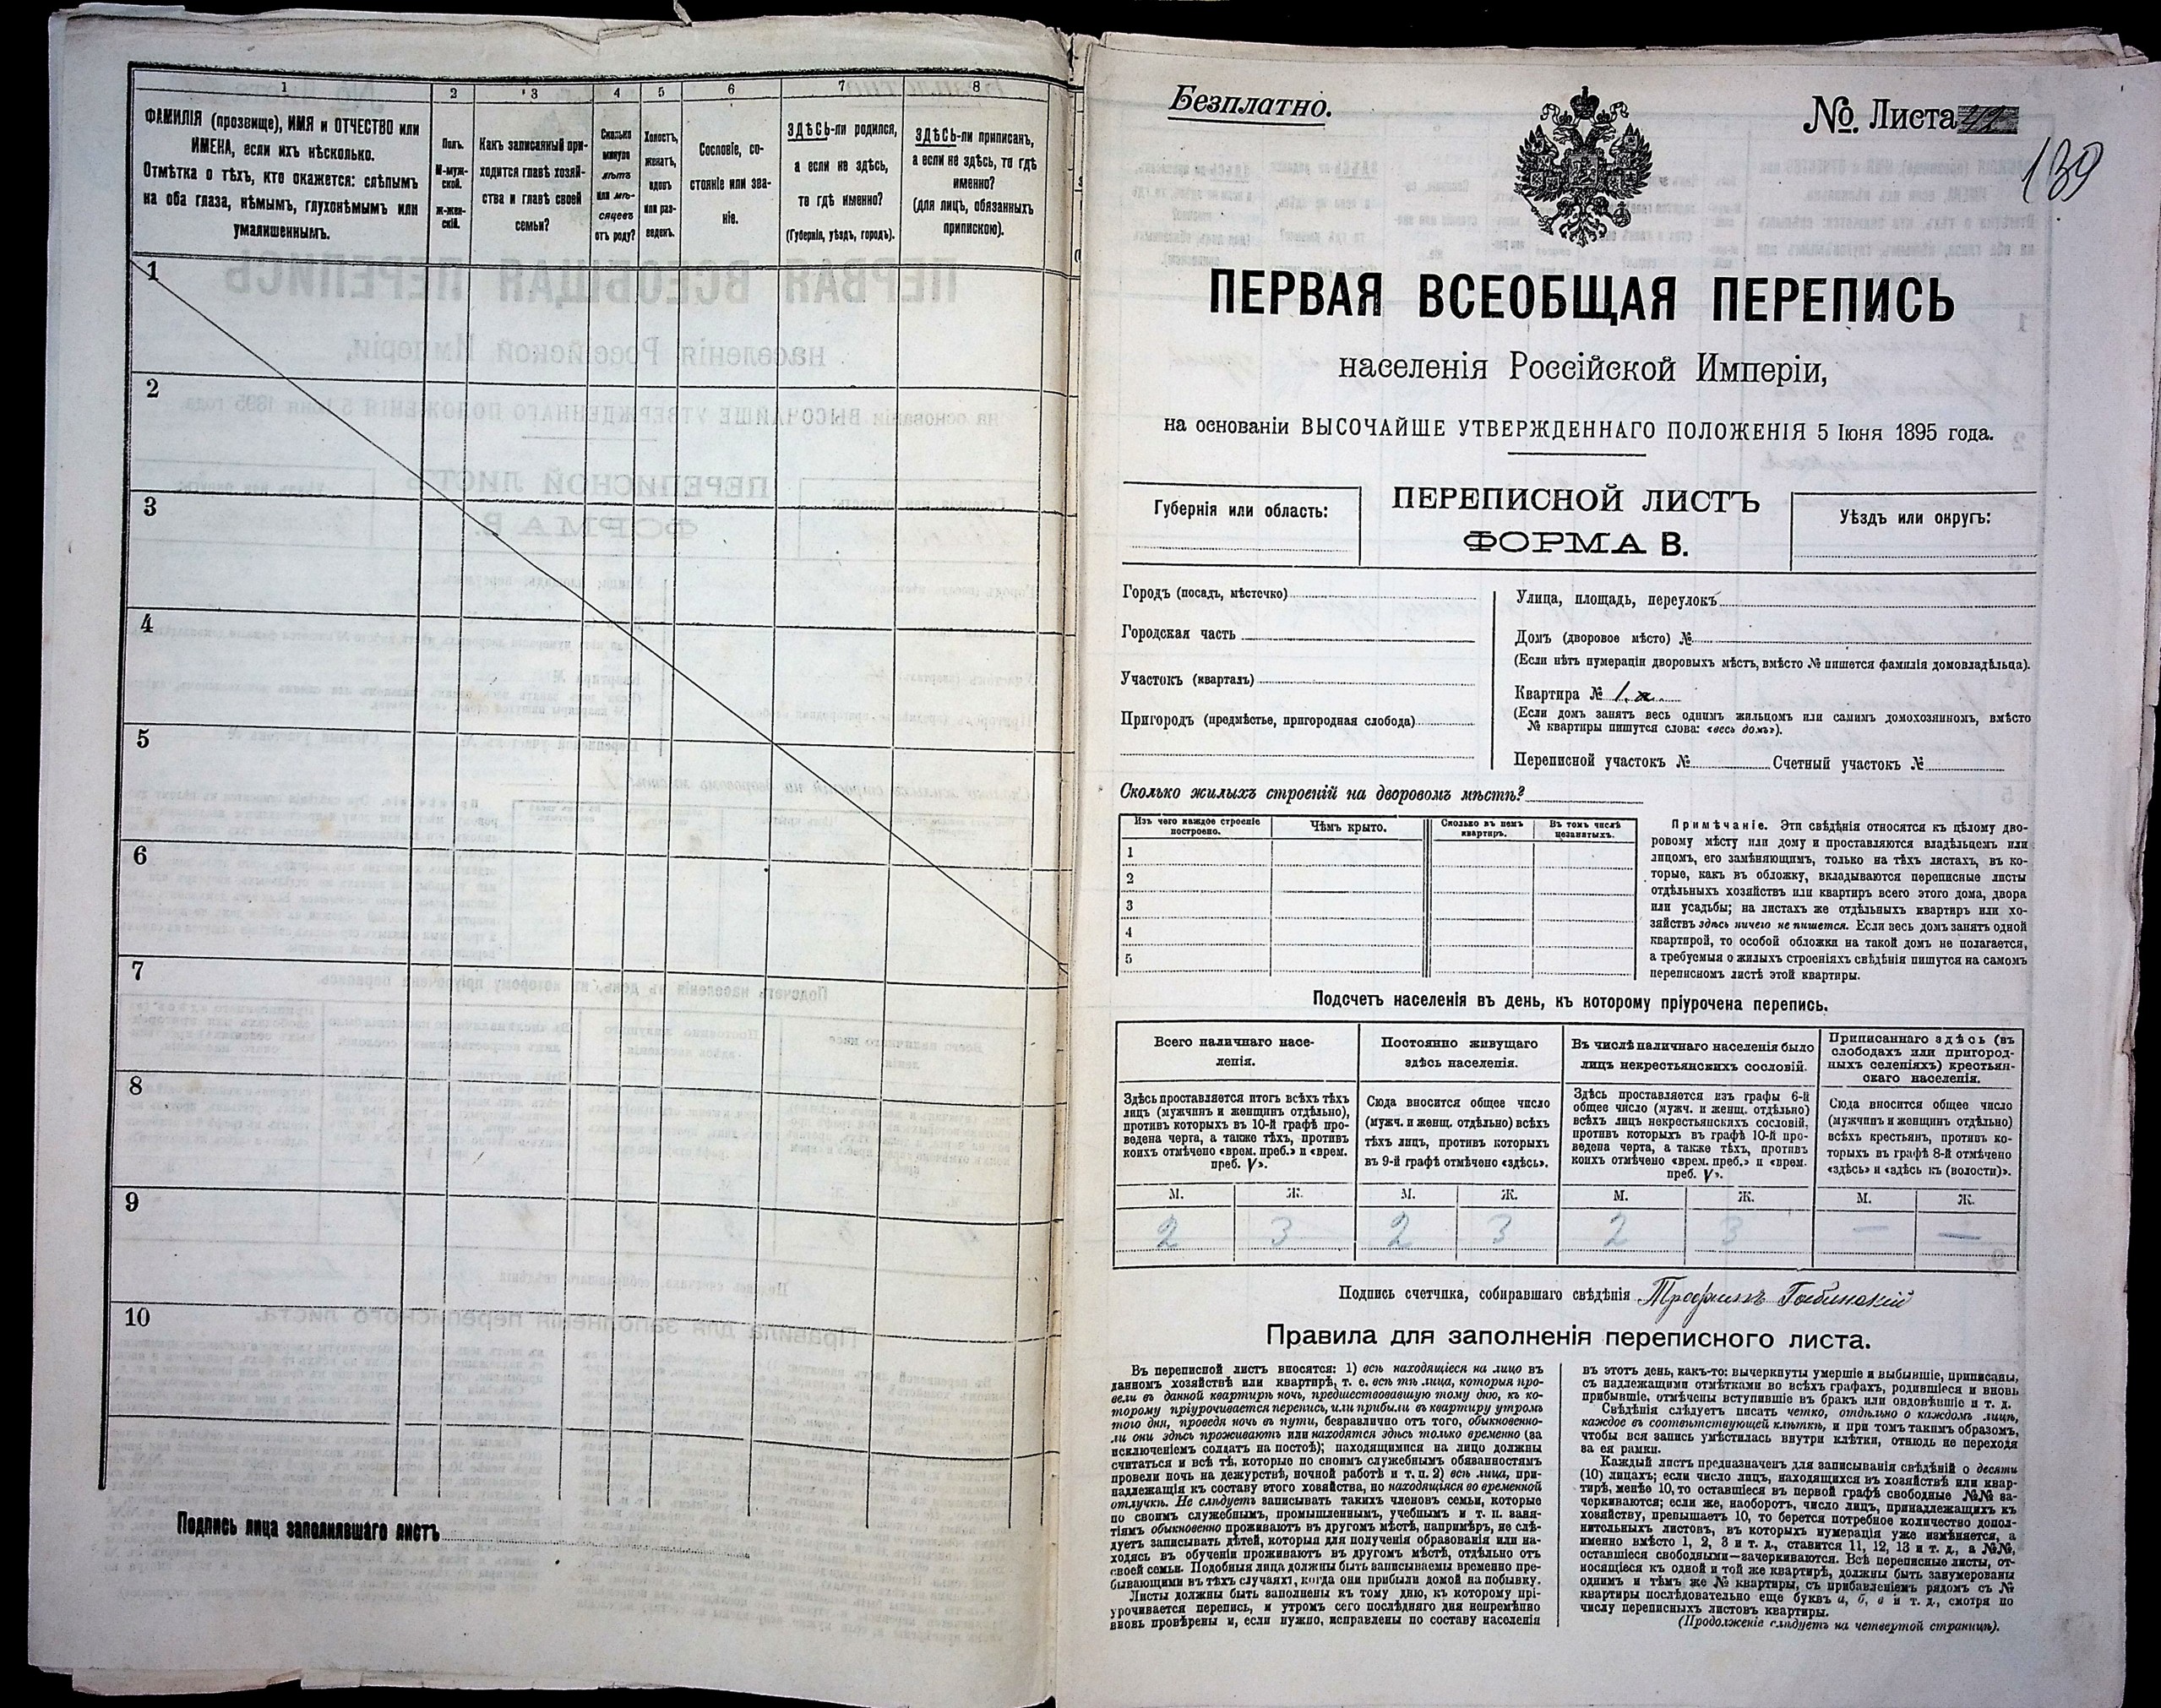 1 2 3 4 5 6 7 8
ФАМИЛІЯ (прозвище), ИМЯ и ОТЧЕСТВО или
ИМЕНА, если ихъ нѣсколько.
Отмѣтка о тѣхъ, кто окажется: слѣпымъ
на оба глаза, нѣмымъ, глухонѣмымъ или
умалишеннымъ.
Полъ.
М-муж-
ской.
Ж-жен-
скій.
Какъ записанный при-
ходится главѣ хозяй-
ства и главѣ своей
семьи?
Сколько
минуло
лѣтъ
или мѣ-
сяцевъ
отъ роду?
Холостъ,
женатъ,
вдовъ
или раз-
веденъ.
Сословіе, со-
стояніе или зва-
ніе.
ЗДѢСЬ-ли родился,
а если не здѣсь,
то гдѣ именно?
(Губернія, уѣздъ, городъ).
ЗДѢСЬ-ли приписанъ,
а если не здѣсь, то гдѣ
именно?
(для лицъ, обязанныхъ
припискою).
1
2
3
4
5
6
7
8
9
10
Подпись лица заполнявшаго листъ
Безплатно.
№. Листа
139
ПЕРВАЯ ВСЕОБЩАЯ ПЕРЕПИСЬ
населенія Россійской Имперіи,
на основаніи ВЫСОЧАЙШЕ УТВЕРЖДЕННАГО ПОЛОЖЕНІЯ 5 Іюня 1895 года.
Губернія или область:
ПЕРЕПИСНОЙ ЛИСТЪ
ФОРМА В.
Уѣздъ или округъ:
Городъ (посадъ, мѣстечко)
Городская часть
Участокъ (кварталъ)
Пригородъ (предмѣстье, пригородная слобода)
Улица, площадь, переулокъ
Домъ (дворовое мѣсто) №
(Если нѣтъ нумераціи дворовыхъ мѣстъ, вмѣсто № пишется фамилія домовладѣльца).
Квартира № 1.
(Если домъ занятъ весь однимъ жильцомъ или самимъ домохозяиномъ, вмѣсто
№ квартиры пишутся слова: «весь домъ»).
Переписной участокъ № Счетный участокъ №
Сколько жилыхъ строеній на дворовомъ мѣстѣ?
Изъ чего каждое строеніе
построено.
Чѣмъ крыто.
Сколько въ немъ
квартиръ.
Въ томъ числѣ
незанятыхъ.
1
2
3
4
5
Примѣчаніе. Эти свѣдѣнія относятся къ цѣлому дво-
ровому мѣсту или дому и проставляются владѣльцемъ или
лицомъ, его замѣняющимъ, только на тѣхъ листахъ, въ ко-
торые, какъ въ обложку, вкладываются переписные листы
отдѣльныхъ хозяйствъ или квартиръ всего этого дома, двора
или усадьбы; на листахъ же отдѣльныхъ квартиръ или хо-
зяйствъ здѣсь ничего не пишется. Если весь домъ занятъ одной
квартирой, то особой обложки на такой домъ не полагается,
а требуемыя о жилыхъ строеніяхъ свѣдѣнія пишутся на самомъ
переписномъ листѣ этой квартиры.
Подсчетъ населенія въ день, къ которому пріурочена перепись.
Всего наличнаго насе-
ленія.
Здѣсь проставляется итогъ всѣхъ тѣхъ
лицъ (мужчинъ и женщинъ отдѣльно),
противъ которыхъ въ 10-й графѣ про-
ведена черта, а также тѣхъ, противъ
коихъ отмѣчено «врем. преб.» и «врем.
преб. V».
Постоянно живущаго
здѣсь населенія.
Сюда вносится общее число
(мужч. и женщ. отдѣльно) всѣхъ
тѣхъ лицъ, противъ которыхъ
въ 9-й графѣ отмѣчено «здѣсь».
Въ числѣ наличнаго населенія было
лицъ некрестьянскихъ сословій.
Здѣсь проставляется изъ графы 6-й
общее число (мужч. и женщ. отдѣльно)
всѣхъ лицъ некрестьянскихъ сословій,
противъ которыхъ въ графѣ 10-й про-
ведена черта, а также тѣхъ, противъ
коихъ отмѣчено «врем. преб.» и «врем.
преб. V».
Приписаннаго здѣсь (въ
слободахъ или пригород-
ныхъ селеніяхъ) крестьян-
скаго населенія.
Сюда вносится общее число
(мужчинъ и женщинъ отдѣльно)
всѣхъ крестьянъ, противъ ко-
торыхъ въ графѣ 8-й отмѣчено
«здѣсь» и «здѣсь къ (волости)».
М. Ж. М. Ж. М. Ж. М. Ж.
2 3 2 3 2 3 — —
Подпись счетчика, собиравшаго свѣдѣнія Трофимъ
Правила для заполненія переписного листа.
Въ переписной листъ вносятся: 1) всѣ находящіеся на лицо въ
данномъ хозяйствѣ или квартирѣ, т. е. всѣ тѣ лица, которыя про-
вели въ данной квартирѣ ночь, предшествовавшую тому дню, къ ко-
торому пріурочивается перепись, или прибыли въ квартиру утромъ
того дня, проведя ночь въ пути, безразлично отъ того, обыкновенно-
ли они здѣсь проживаютъ или находятся здѣсь только временно (за
исключеніемъ солдатъ на постоѣ); находящимися на лицо должны
считаться и всѣ тѣ, которые по своимъ служебнымъ обязанностямъ
провели ночь на дежурствѣ, ночной работѣ и т. п. 2) всѣ лица, при-
надлежащія къ составу этого хозяйства, но находящіяся во временной
отлучкѣ. Не слѣдуетъ записывать такихъ членовъ семьи, которые
по своимъ служебнымъ, промышленнымъ, учебнымъ и т. п. заня-
тіямъ обыкновенно проживаютъ въ другомъ мѣстѣ, напримѣръ, не слѣ-
дуетъ записывать дѣтей, которыя для полученія образованія или на-
ходясь въ обученіи проживаютъ въ другомъ мѣстѣ, отдѣльно отъ
своей семьи. Подобныя лица должны быть записываемы временно пре-
бывающими въ тѣхъ случаяхъ, когда они прибыли домой на побывку.
Листы должны быть заполнены къ тому дню, къ которому прі-
урочивается перепись, и утромъ сего послѣдняго дня непремѣнно
вновь провѣрены и, если нужно, исправлены по составу населенія
въ этотъ день, какъ-то: вычеркнуты умершіе и выбывшіе, приписаны,
съ надлежащими отмѣтками во всѣхъ графахъ, родившіеся и вновь
прибывшіе, отмѣчены вступившіе въ бракъ или овдовѣвшіе и т. д.
Свѣдѣнія слѣдуетъ писать четко, отдѣльно о каждомъ лицѣ,
каждое въ соотвѣтствующей клѣткѣ, и при томъ такимъ образомъ,
чтобы вся запись умѣстилась внутри клѣтки, отнюдь не переходя
за ея рамки.
Каждый листъ предназначенъ для записыванія свѣдѣній о десяти
(10) лицахъ; если число лицъ, находящихся въ хозяйствѣ или квар-
тирѣ, менѣе 10, то оставшіеся въ первой графѣ свободные №№ за-
черкиваются; если же, наоборотъ, число лицъ, принадлежащихъ къ
хозяйству, превышаетъ 10, то берется потребное количество допол-
нительныхъ листовъ, въ которыхъ нумерація уже измѣняется, а
именно вмѣсто 1, 2, 3 и т. д., ставится 11, 12, 13 и т. д., а №№,
оставшіеся свободными—зачеркиваются. Всѣ переписные листы, от-
носящіеся къ одной и той же квартирѣ, должны быть занумерованы
однимъ и тѣмъ же № квартиры, съ прибавленіемъ рядомъ съ №
квартиры послѣдовательно еще буквъ а, б, в и т. д., смотря по
числу переписныхъ листовъ квартиры.
(Продолженіе слѣдуетъ на четвертой страницѣ).